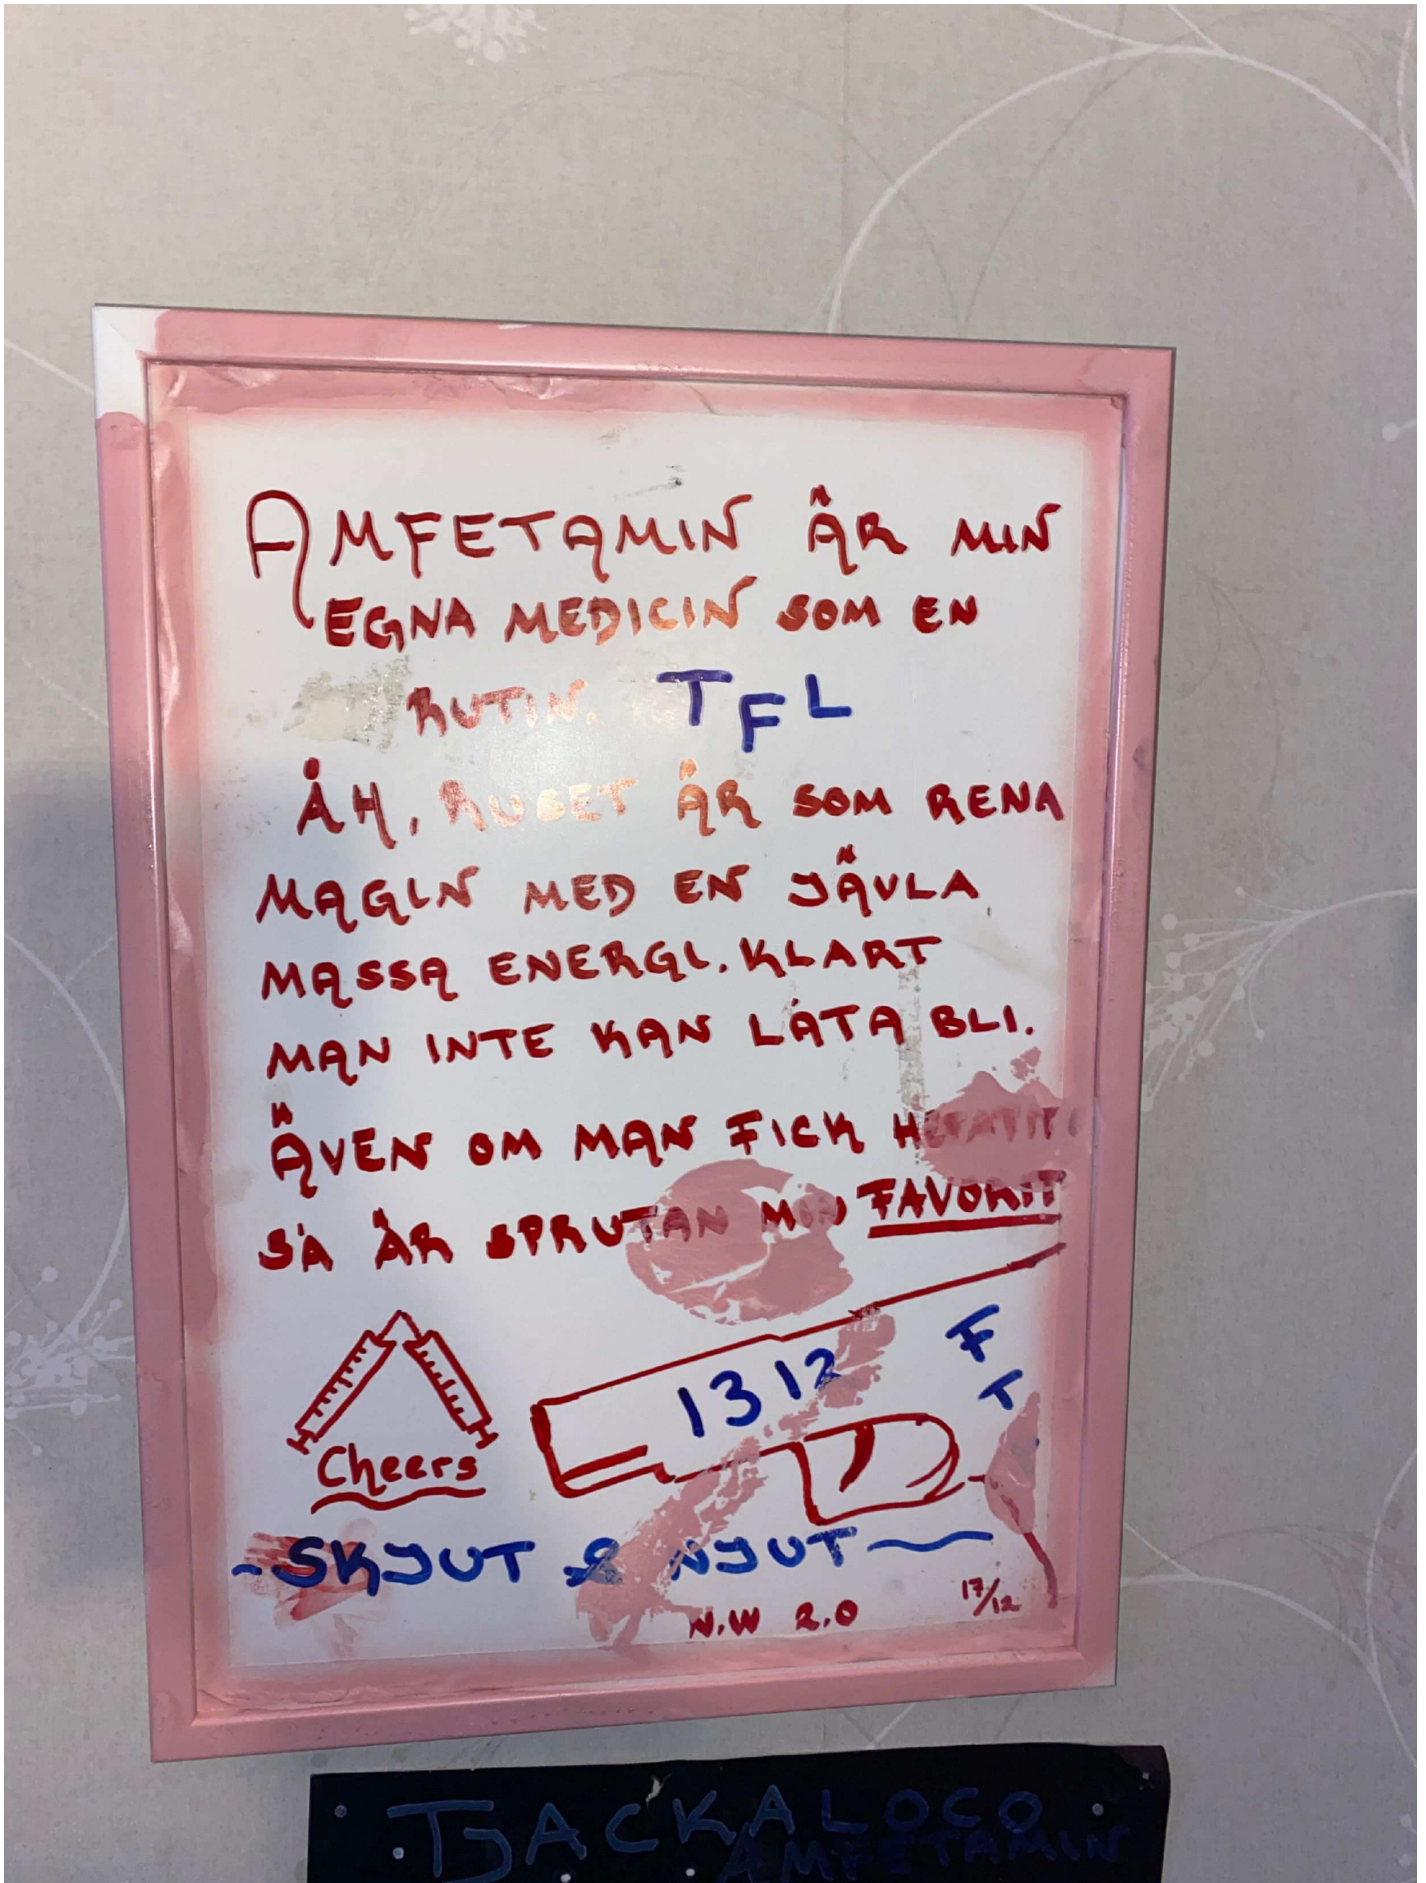 AMFETAMIN ÄR MIN
EGNA MEDICIN SOM EN
RUTIN. TFL
ÅH, RUSET ÄR SOM RENA
MAGIN MED EN JÄVLA
MASSA ENERGI. KLART
MAN INTE KAN LÅTA BLI.
ÄVEN OM MAN FICK HEPATIT
SÅ ÄR SPRUTAN MIN FAVORIT
1312
F
T
Cheers
~SKJUT & NJUT~
N.W 2.0
17/12
TJACKALOCO
AMFETAMIN